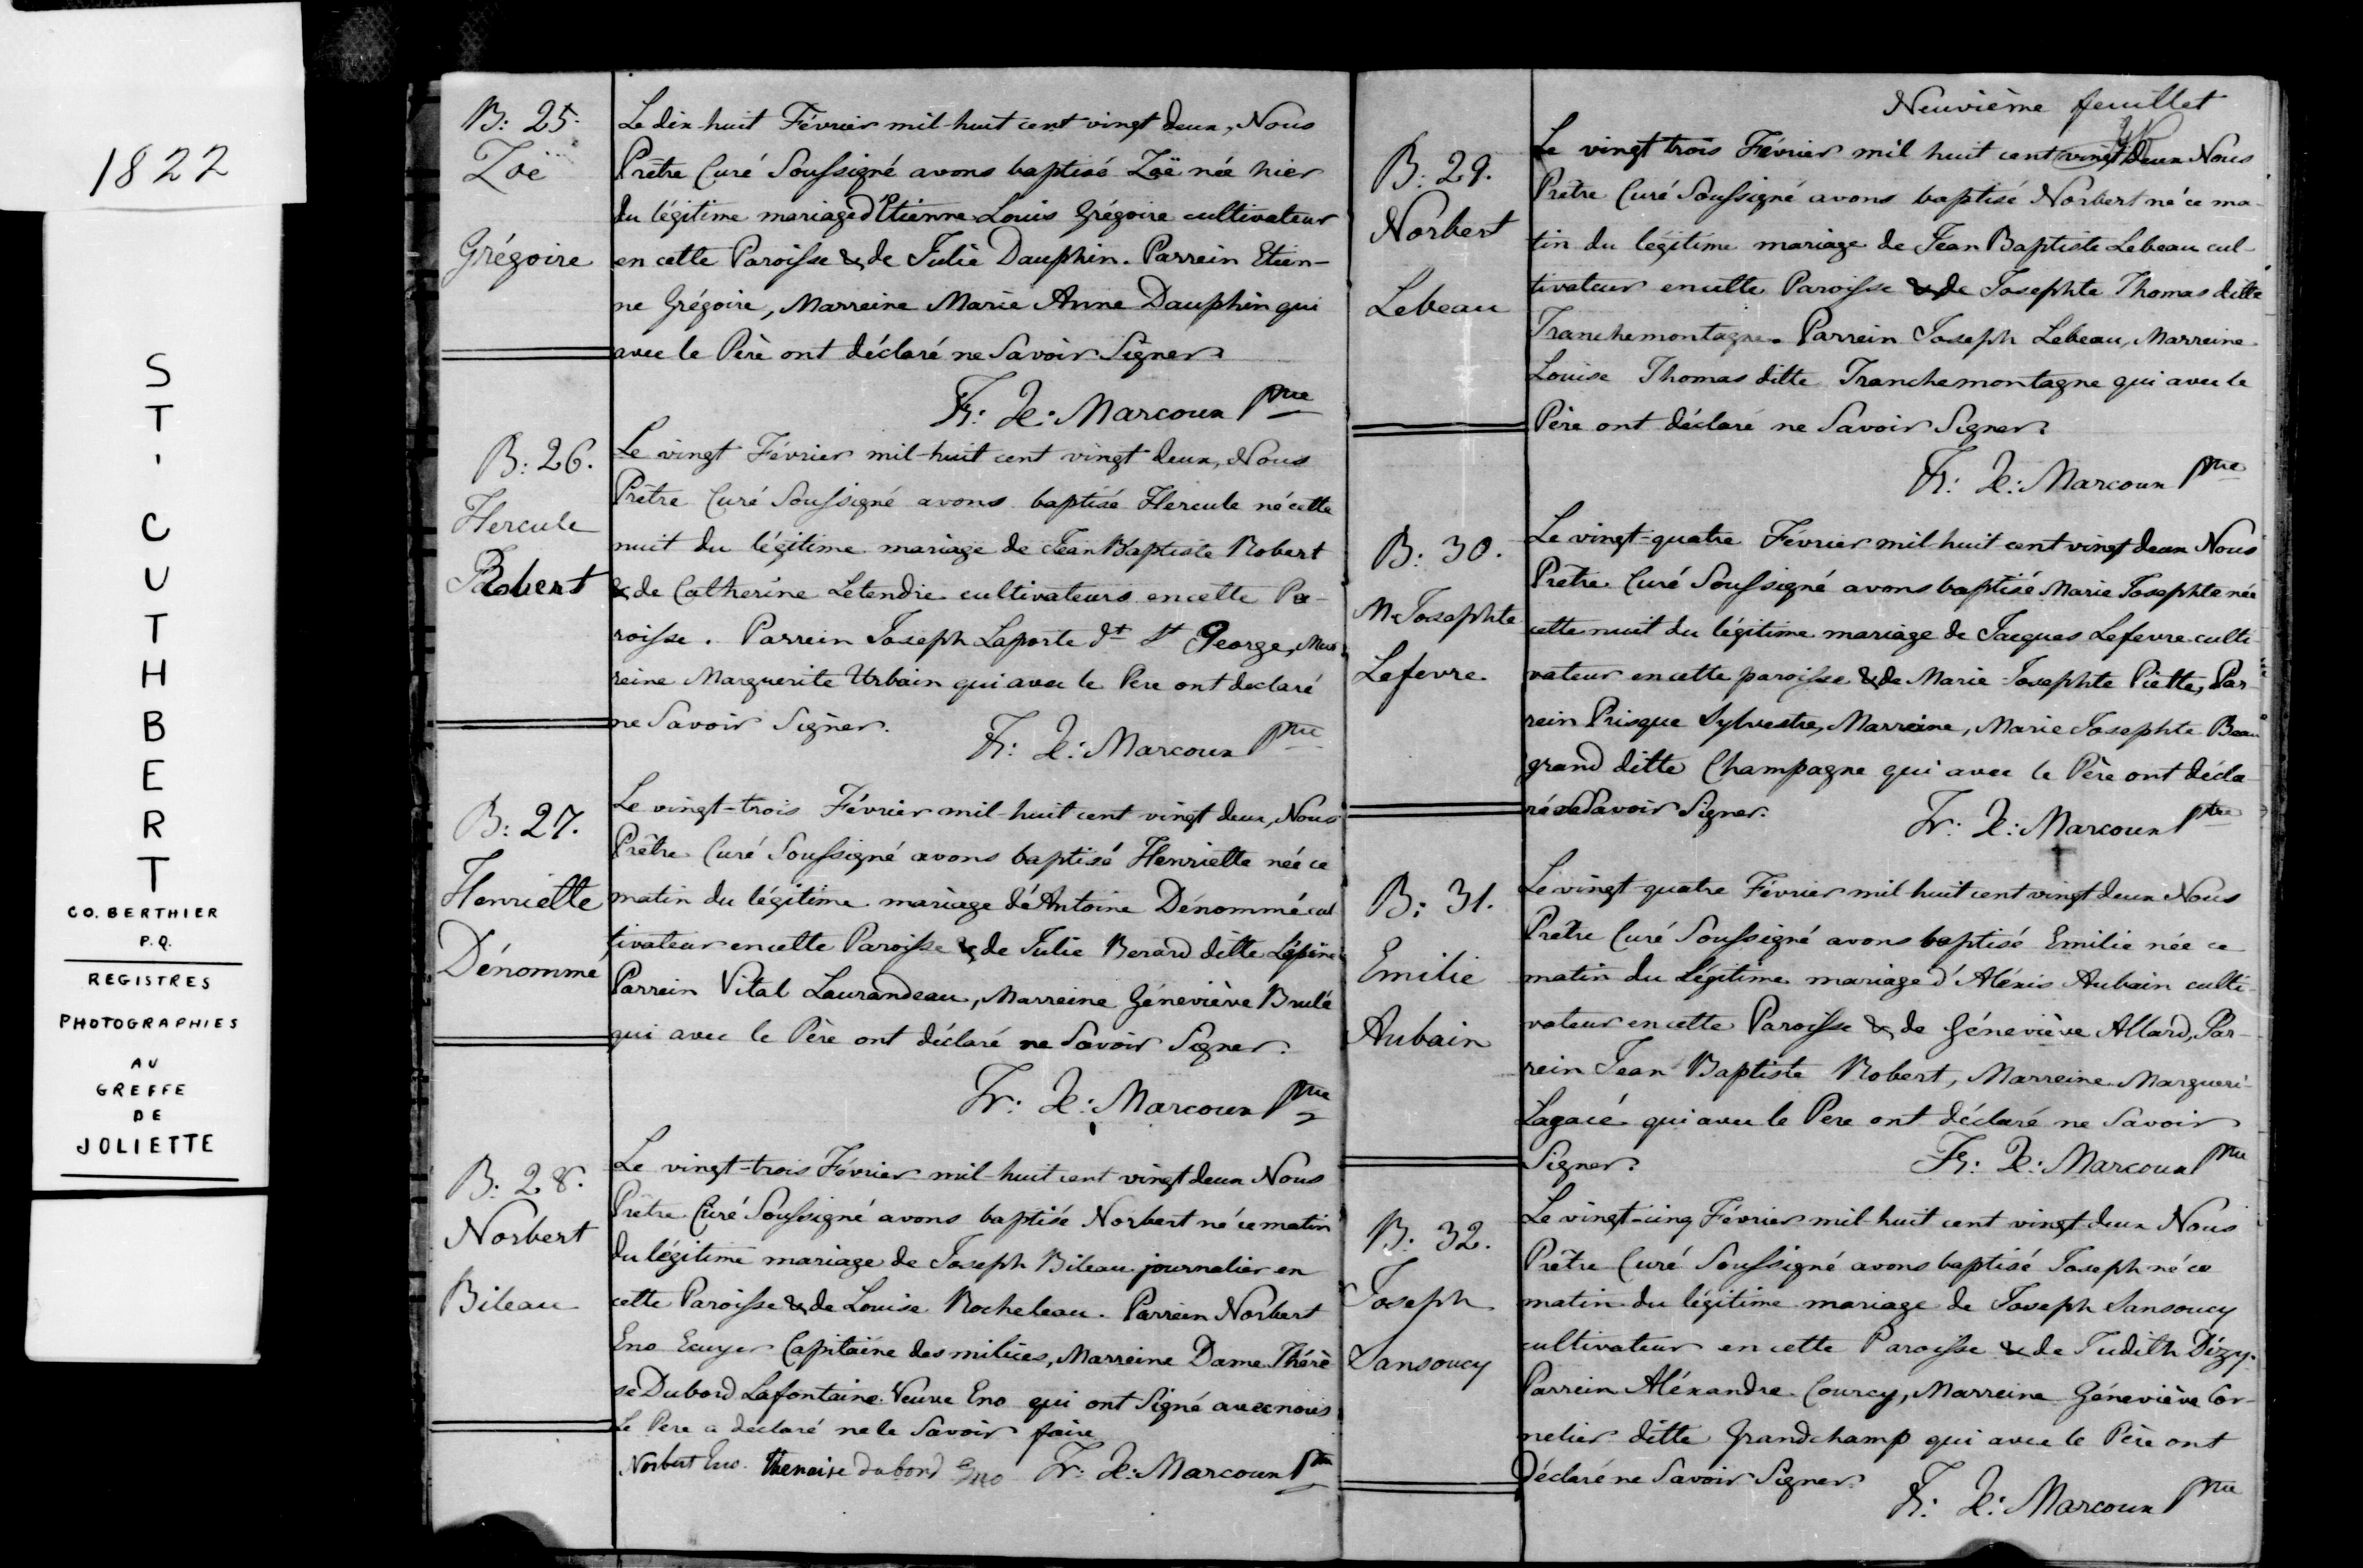 1822
ST' CUTHBERT
CO. BERTHIER
P.Q.
REGISTRES
PHOTOGRAPHIES
AU
GREFFE
DE
JOLIETTE
B: 25.
Zoë
Grégoire
Le dix-huit Février mil-huit cent vingt deux, Nous
Prêtre Curé Soussigné avons baptisé Zoë née hier
du légitime mariage d'Etienne Louis Grégoire cultivateur
en cette Paroisse & de Julie Dauphin. Parrein Etien-
ne Grégoire, Marreine Marie Anne Dauphin qui
avec le Père ont déclaré ne Savoir Signer
Fr: X: Marcoux Ptre
B: 26.
Hercule
Robert
Le vingt Février mil-huit cent vingt deux, Nous
Prêtre Curé Soussigné avons baptisé Hercule né cette
nuit du légitime mariage de Jean Baptiste Robert
& de Catherine Letendre cultivateurs en cette Pa-
roisse. Parrein Joseph Laporte dt St George, Mar
reine Marguerite Urbain qui avec le Pere ont declaré
ne Savoir Signer.
Fr: X: Marcoux Ptre
B: 27.
Henriette
Dénommé
Le vingt-trois Février mil-huit cent vingt deux, Nous
Prêtre Curé Soussigné avons baptisé Henriette née ce
matin du légitime mariage d'Antoine Dénommé cul
tivateur en cette Paroisse & de Julie Berard ditte Lépine
Parrein Vital Laurandeau, Marreine Géneviève Brulé
qui avec le Père ont déclaré ne Savoir Signer.
Fr: X: Marcoux Ptre
B: 28.
Norbert
Bileau
Le vingt-trois Février mil-huit cent vingt deux Nous
Prêtre Curé Soussigné avons baptisé Norbert né ce matin
du légitime mariage de Joseph Bileau journalier en
cette Paroisse & de Louise Rocheleau. Parrein Norbert
Eno Ecuyer Capitaine des milices, Marreine Dame Thérè
se Dubord Lafontaine Veuve Eno qui ont Signé avec nous
Le Pere a declaré ne le Savoir faire
Norbert Eno. dubord Eno Fr: X: Marcoux Ptre
Neuvième feuillet
B: 29.
Norbert
Lebeau
Le vingt trois Février mil huit cent vingt deux Nous
Prêtre Curé Soussigné avons baptisé Norbert né ce ma-
tin du légitime mariage de Jean Baptiste Lebeau cul-
tivateur en cette Paroisse & de Josephte Thomas ditte
Tranchemontagne. Parrein Joseph Lebeau, Marreine
Louise Thomas ditte Tranchemontagne qui avec le
Père ont déclaré ne Savoir Signer.
Fr: X: Marcoux Ptre
B: 30.
M. Josephte
Lefevre.
Le vingt-quatre Février mil-huit cent vingt deux Nous
Prêtre Curé Soussigné avons baptisé Marie Josephte née
cette nuit du légitime mariage de Jacques Lefevre culti
vateur en cette paroisse & de Marie Josephte Piette, Par-
rein Prisque Sylvestre, Marreine, Marie Josephte Beau
grand ditte Champagne qui avec le Père ont décla
ré ne Savoir Signer.
Fr: X: Marcoux Ptre
B: 31.
Emilie
Aubain
Le vingt-quatre Février mil huit cent vingt deux Nous
Prêtre Curé Soussigné avons baptisé Emilie née ce
matin du Légitime mariage d'Aléxis Aubain culti-
vateur en cette Paroisse & de Géneviève Allard, Par-
rein Jean Baptiste Robert, Marreine Margueri-
Lagacé qui avec le Pere ont déclaré ne Savoir
Signer.
Fr: X: Marcoux Ptre
B: 32.
Joseph
Sansoucy
Le vingt-cinq Février mil-huit cent vingt deux Nous
Prêtre Curé Soussigné avons baptisé Joseph né ce
matin du légitime mariage de Joseph Sansoucy
cultivateur en cette Paroisse & de Judith Dizy.
Parrein Aléxandre Courcy, Marreine Géneviève Cor-
nelier ditte Grandchamp qui avec le Père ont
Déclaré ne Savoir Signer.
Fr: X: Marcoux Ptre